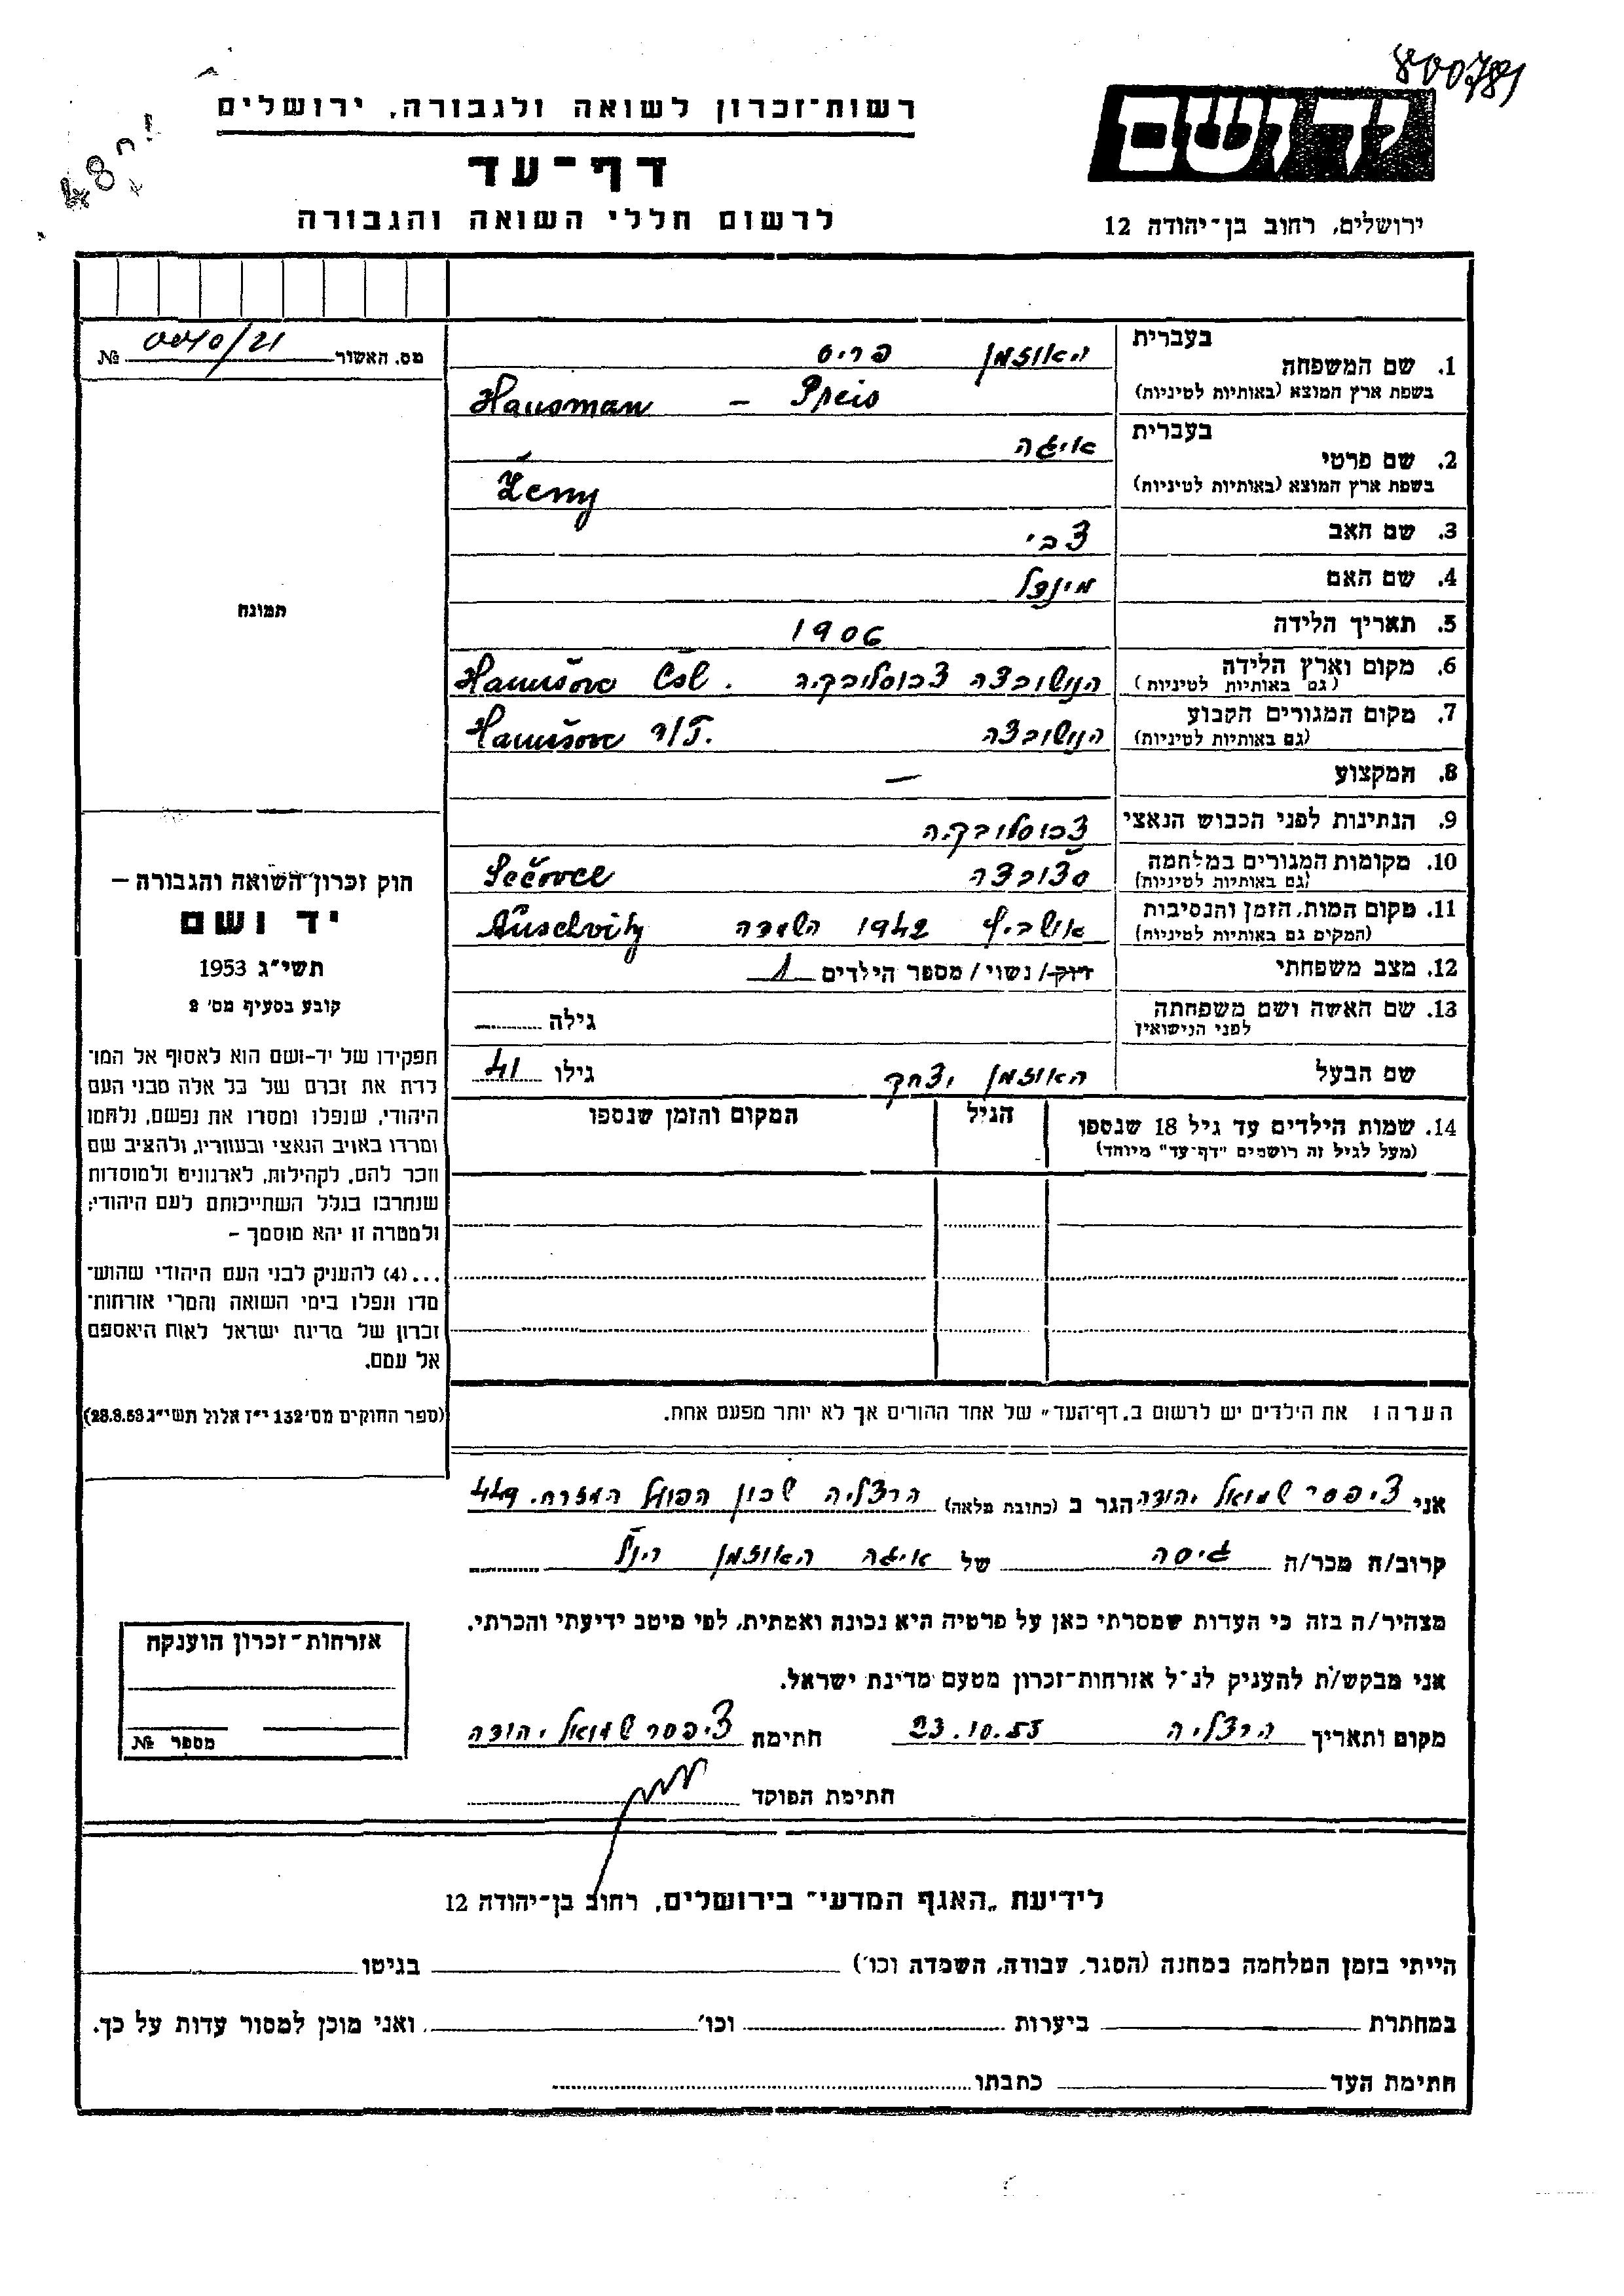 800781
48
רשות־זכרון לשואה ולגבורה, ירושלים
דף־עד
לרשום חללי השואה והגבורה
יד ושם
ירושלים, רחוב בן־יהודה 12
מס. האשור № 0040/21
1. שם המשפחה בעברית האוזמן פריס
בשפת ארץ המוצא (באותיות לטיניות) Hausman – Preis
2. שם פרטי בעברית
בשפת ארץ המוצא (באותיות לטיניות)
3. שם האב צבי
4. שם האם מינדל
5. תאריך הלידה 1906
6. מקום וארץ הלידה (גם באותיות לטיניות) הנושובצה צכוסלובקיה. Hanušovce Čsl
7. מקום המגורים הקבוע (גם באותיות לטיניות) הנושובצה Hanušovce n/T.
8. המקצוע —
9. הנתינות לפני הכבוש הנאצי צכוסלובקיה
10. מקומות המגורים במלחמה (גם באותיות לטיניות) סצובצה Sečovce
11. מקום המות, הזמן והנסיבות (המקום גם באותיות לטיניות) אושביץ 1942 השמדה Auschvitz
12. מצב משפחתי רווק/ נשוי/ מספר הילדים 1
13. שם האשה ושם משפחתה לפני הנישואין גילה
שם הבעל האוזמן יצחק גילו 41
14. שמות הילדים עד גיל 18 שנספו הגיל המקום והזמן שנספו
(מעל לגיל זה רושמים "דף־עד" מיוחד)
תמונה
חוק זכרון השואה והגבורה —
יד ושם
תשי״ג 1953
קובע בסעיף מס׳ 2
תפקידו של יד־ושם הוא לאסוף אל המו־
לדת את זכרם של כל אלה מבני העם
היהודי, שנפלו ומסרו את נפשם, נלחמו
ומרדו באויב הנאצי ובעוזריו, ולהציב שם
וזכר להם, לקהילות, לארגונים ולמוסדות
שנחרבו בגלל השתייכותם לעם היהודי;
ולמטרה זו יהא מוסמך –
...(4) להעניק לבני העם היהודי שהוש־
מדו ונפלו בימי השואה והמרי אזרחות־
זכרון של מדינת ישראל לאות היאספם
אל עמם.
(ספר החוקים מס׳ 132 י״ז אלול תשי״ג 28.8.53)
הערה: את הילדים יש לרשום ב„דף־העד״ של אחד ההורים אך לא יותר מפעם אחת.
אני ציפסר שמואל יהודה הגר ב (כתובת מלאה) הרצליה שכון הפועל המזרחי 449
קרוב/ה מכר/ה גיסה של האוזמן הנ״ל
מצהיר/ה בזה כי העדות שמסרתי כאן על פרטיה היא נכונה ואמתית, לפי מיטב ידיעתי והכרתי.
אני מבקש/ת להעניק לנ״ל אזרחות־זכרון מטעם מדינת ישראל.
מקום ותאריך הרצליה 23.10.55 חתימה ציפסר שמואל יהודה
חתימת הפוקד
אזרחות־זכרון הוענקה
מספר №
לידיעת „האגף המדעי״ בירושלים, רחוב בן־יהודה 12
הייתי בזמן המלחמה במחנה (הסגר, עבודה, השמדה וכו׳) בגיטו
במחתרת ביערות וכו׳ ואני מוכן למסור עדות על כך.
חתימת העד כתבתו